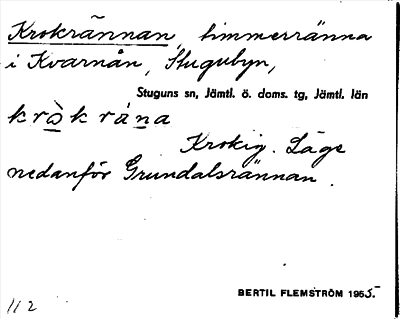 Krokrännan, timmerränna
i Kvarnån, Stugubyn,
Stuguns sn, Jämtl. ö. doms. tg, Jämtl. län
krò̱k rán̲a
Krokig. Läge
nedanför Grundalsrännan.
BERTIL FLEMSTRÖM 1955
112